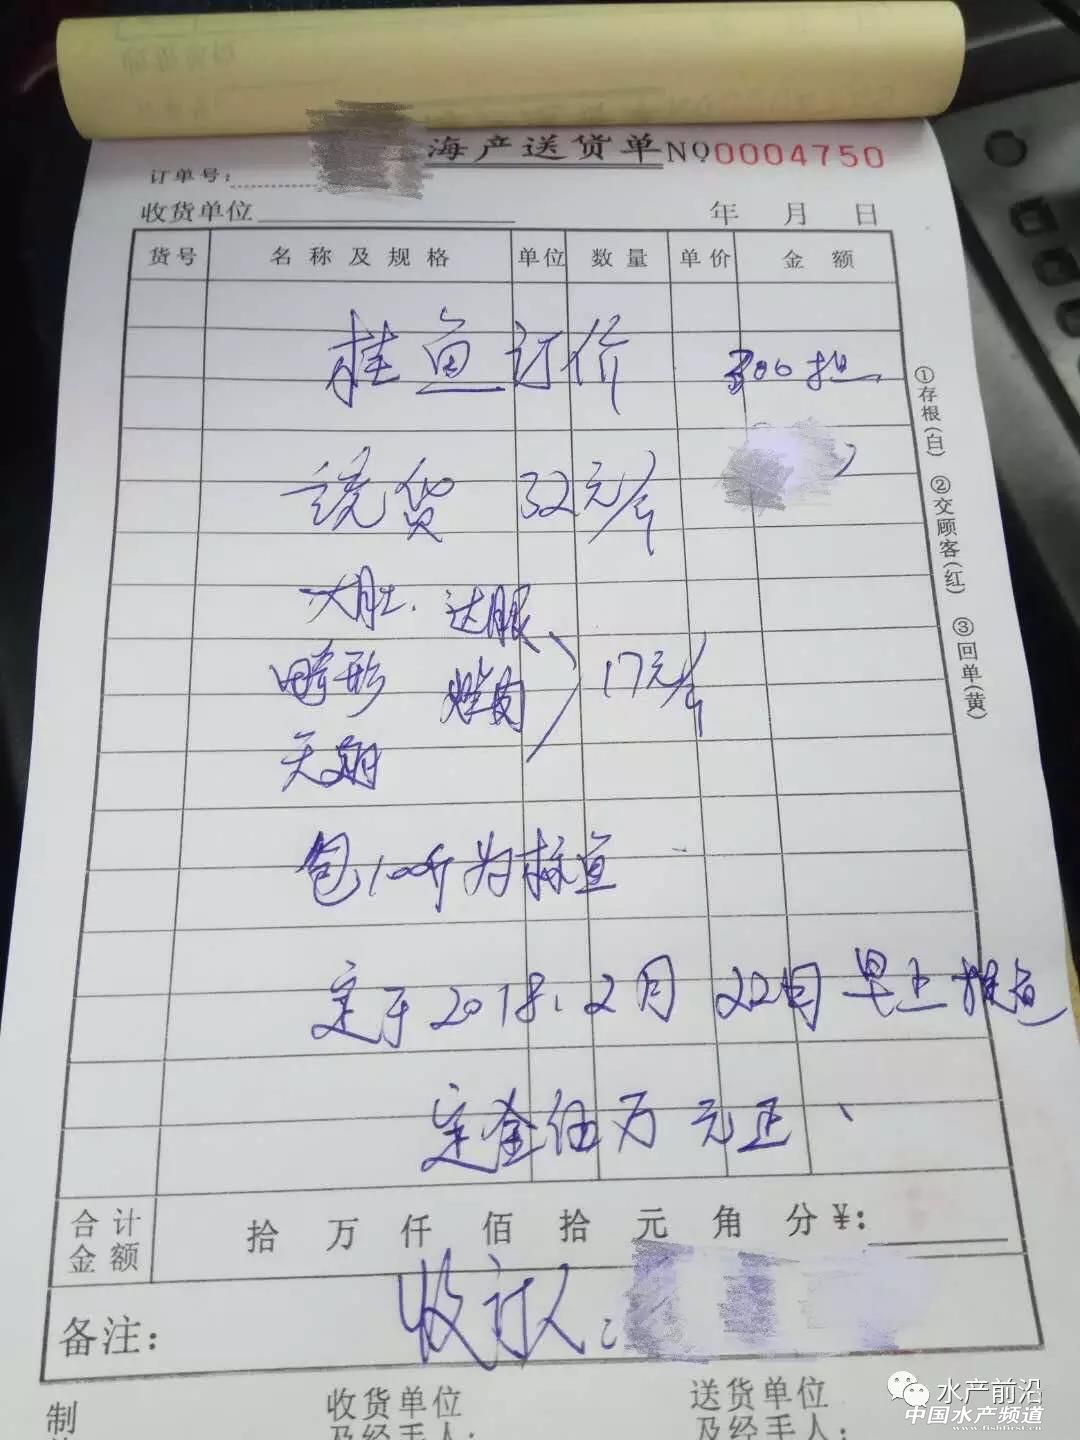 海产送货单 NO.0004750
订单号:
收货单位 年 月 日
货号 名称及规格 单位 数量 单价 金额
桂鱼订价 300担
统货 32元/斤
大肚、
畸形 17元/斤
包100斤为标鱼
定于2018.2月22日早上
定金伍万元正、
合计金额 拾 万 仟 佰 拾 元 角 分 ¥:
备注: 收订人:
制
收货单位及经手人:
送货单位及经手人:
①存根(白) ②交顾客(红) ③回单(黄)
水产前沿
中国水产频道
www.fishfirst.cn